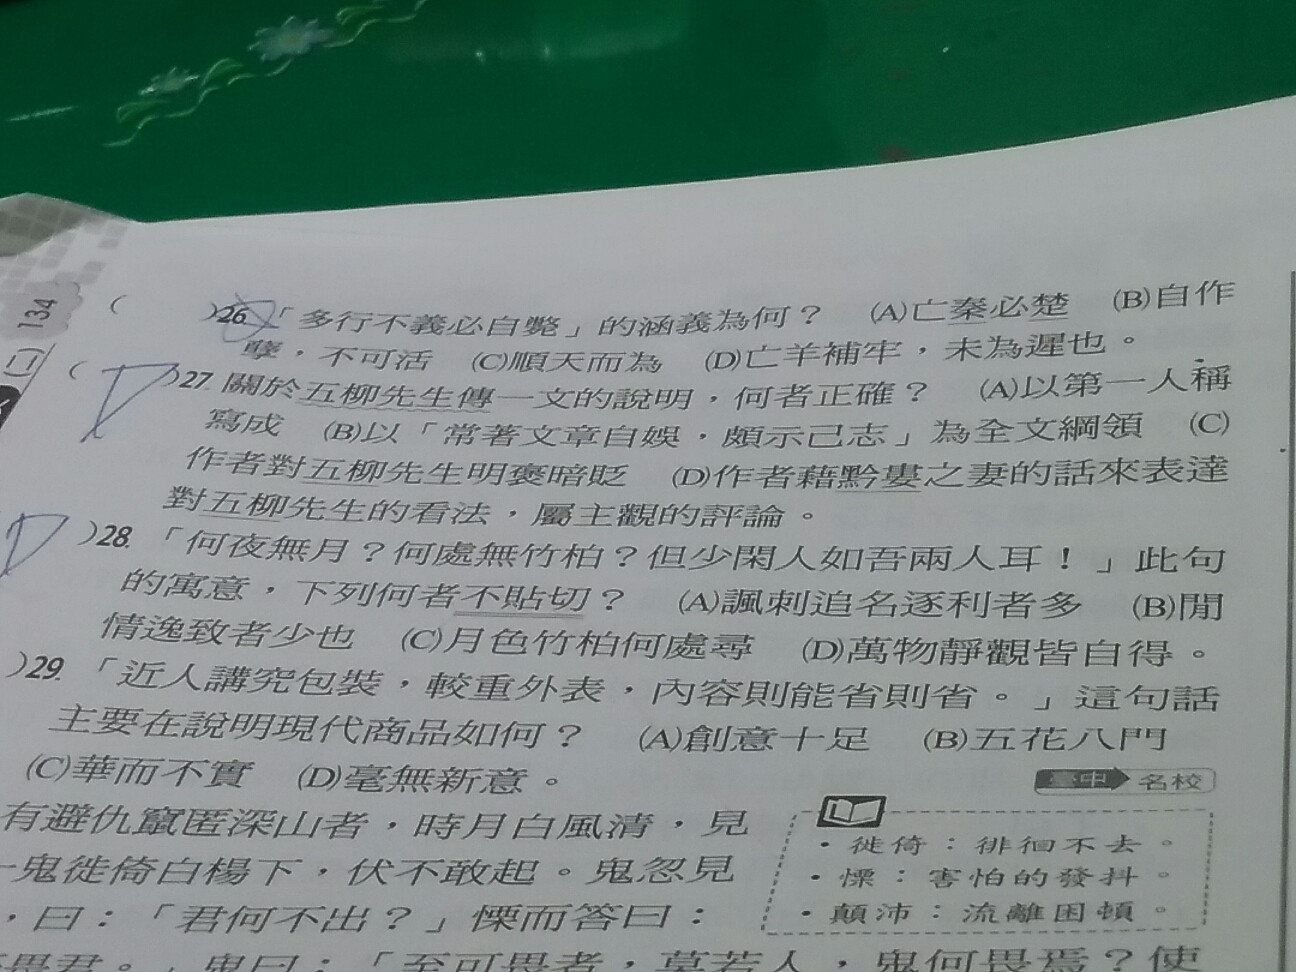 134
( )26.「多行不義必自斃」的涵義為何？ (A)亡秦必楚 (B)自作
孽，不可活 (C)順天而為 (D)亡羊補牢，未為遲也。
( D )27. 關於五柳先生傳一文的說明，何者正確？ (A)以第一人稱
寫成 (B)以「常著文章自娛，頗示己志」為全文綱領 (C)
作者對五柳先生明褒暗貶 (D)作者藉黔婁之妻的話來表達
對五柳先生的看法，屬主觀的評論。
D )28. 「何夜無月？何處無竹柏？但少閑人如吾兩人耳！」此句
的寓意，下列何者不貼切？ (A)諷刺追名逐利者多 (B)閒
情逸致者少也 (C)月色竹柏何處尋 (D)萬物靜觀皆自得。
)29. 「近人講究包裝，較重外表，內容則能省則省。」這句話
主要在說明現代商品如何？ (A)創意十足 (B)五花八門
(C)華而不實 (D)毫無新意。
臺中 名校
有避仇竄匿深山者，時月白風清，見
一鬼徙倚白楊下，伏不敢起。鬼忽見
，曰：「君何不出？」慄而答曰：
畏君。」鬼曰：「至可畏者，莫若人，鬼何畏焉？使
・徙倚：徘徊不去。
・慄：害怕的發抖。
・顛沛：流離困頓。